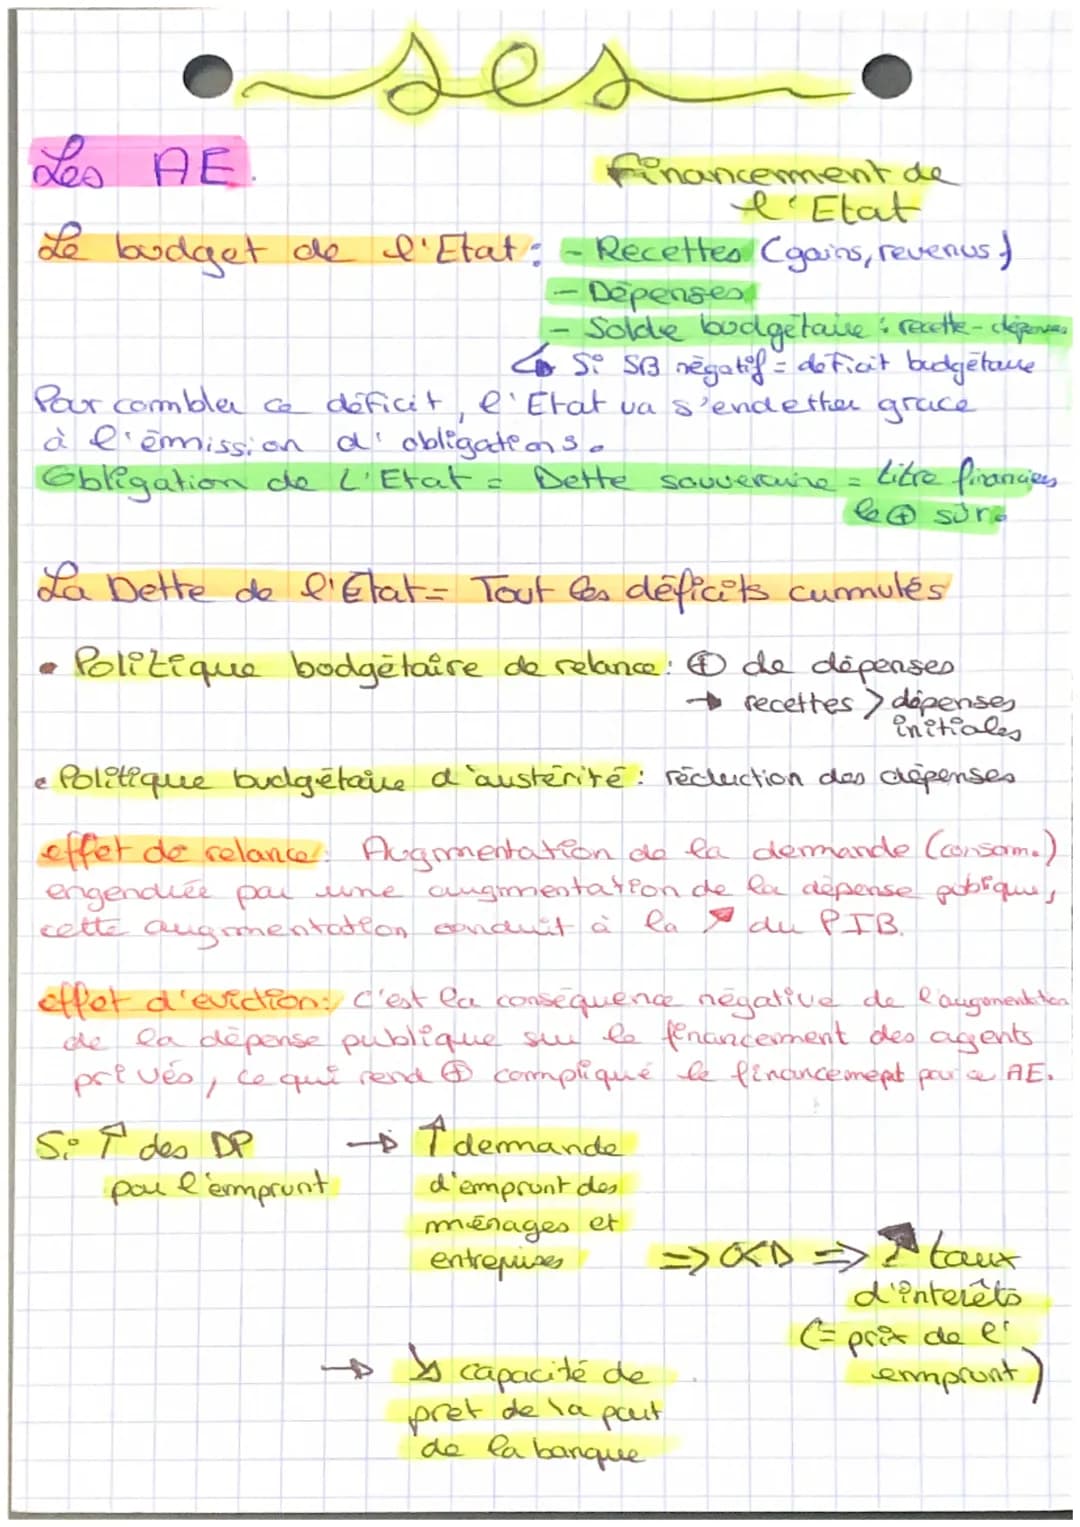 ses
Les AE.
Financement de
l'Etat
Le budget de l'Etat : - Recettes (gains, revenus)
- Dépenses
- Solde budgétaire : recette - dépenses
↳ Si SB négatif = déficit budgétaire
Pour combler ce déficit, l'Etat va s'endetter grace
à l'émission d'obligations.
Obligation de L'Etat = Dette souveraine = titre financiers
le ⊕ sûr.
La Dette de l'Etat = Tout les déficits cummulés
• Politique bodgétaire de relance : ⊕ de dépenses
→ recettes > dépenses
initiales
• Politique budgétaire d'austérité : réduction des dépenses
effet de relance : Augmentation de la demande (consom.)
engendrée par une augmentation de la dépense publique,
cette augmentation conduit à la ↗ du PIB.
effet d'eviction : C'est la conséquence négative de l'augmentation
de la dépense publique sur le financement des agents
privés, ce qui rend ⊕ compliqué le financement pour ce AE.
Si ↑ des DP → ↑ demande
par l'emprunt d'emprunt des
ménages et
entreprises => O<D => ↗ taux
d'interêts
(= prix de l'
emprunt)
→ ↘ capacité de
pret de la part
de la banque